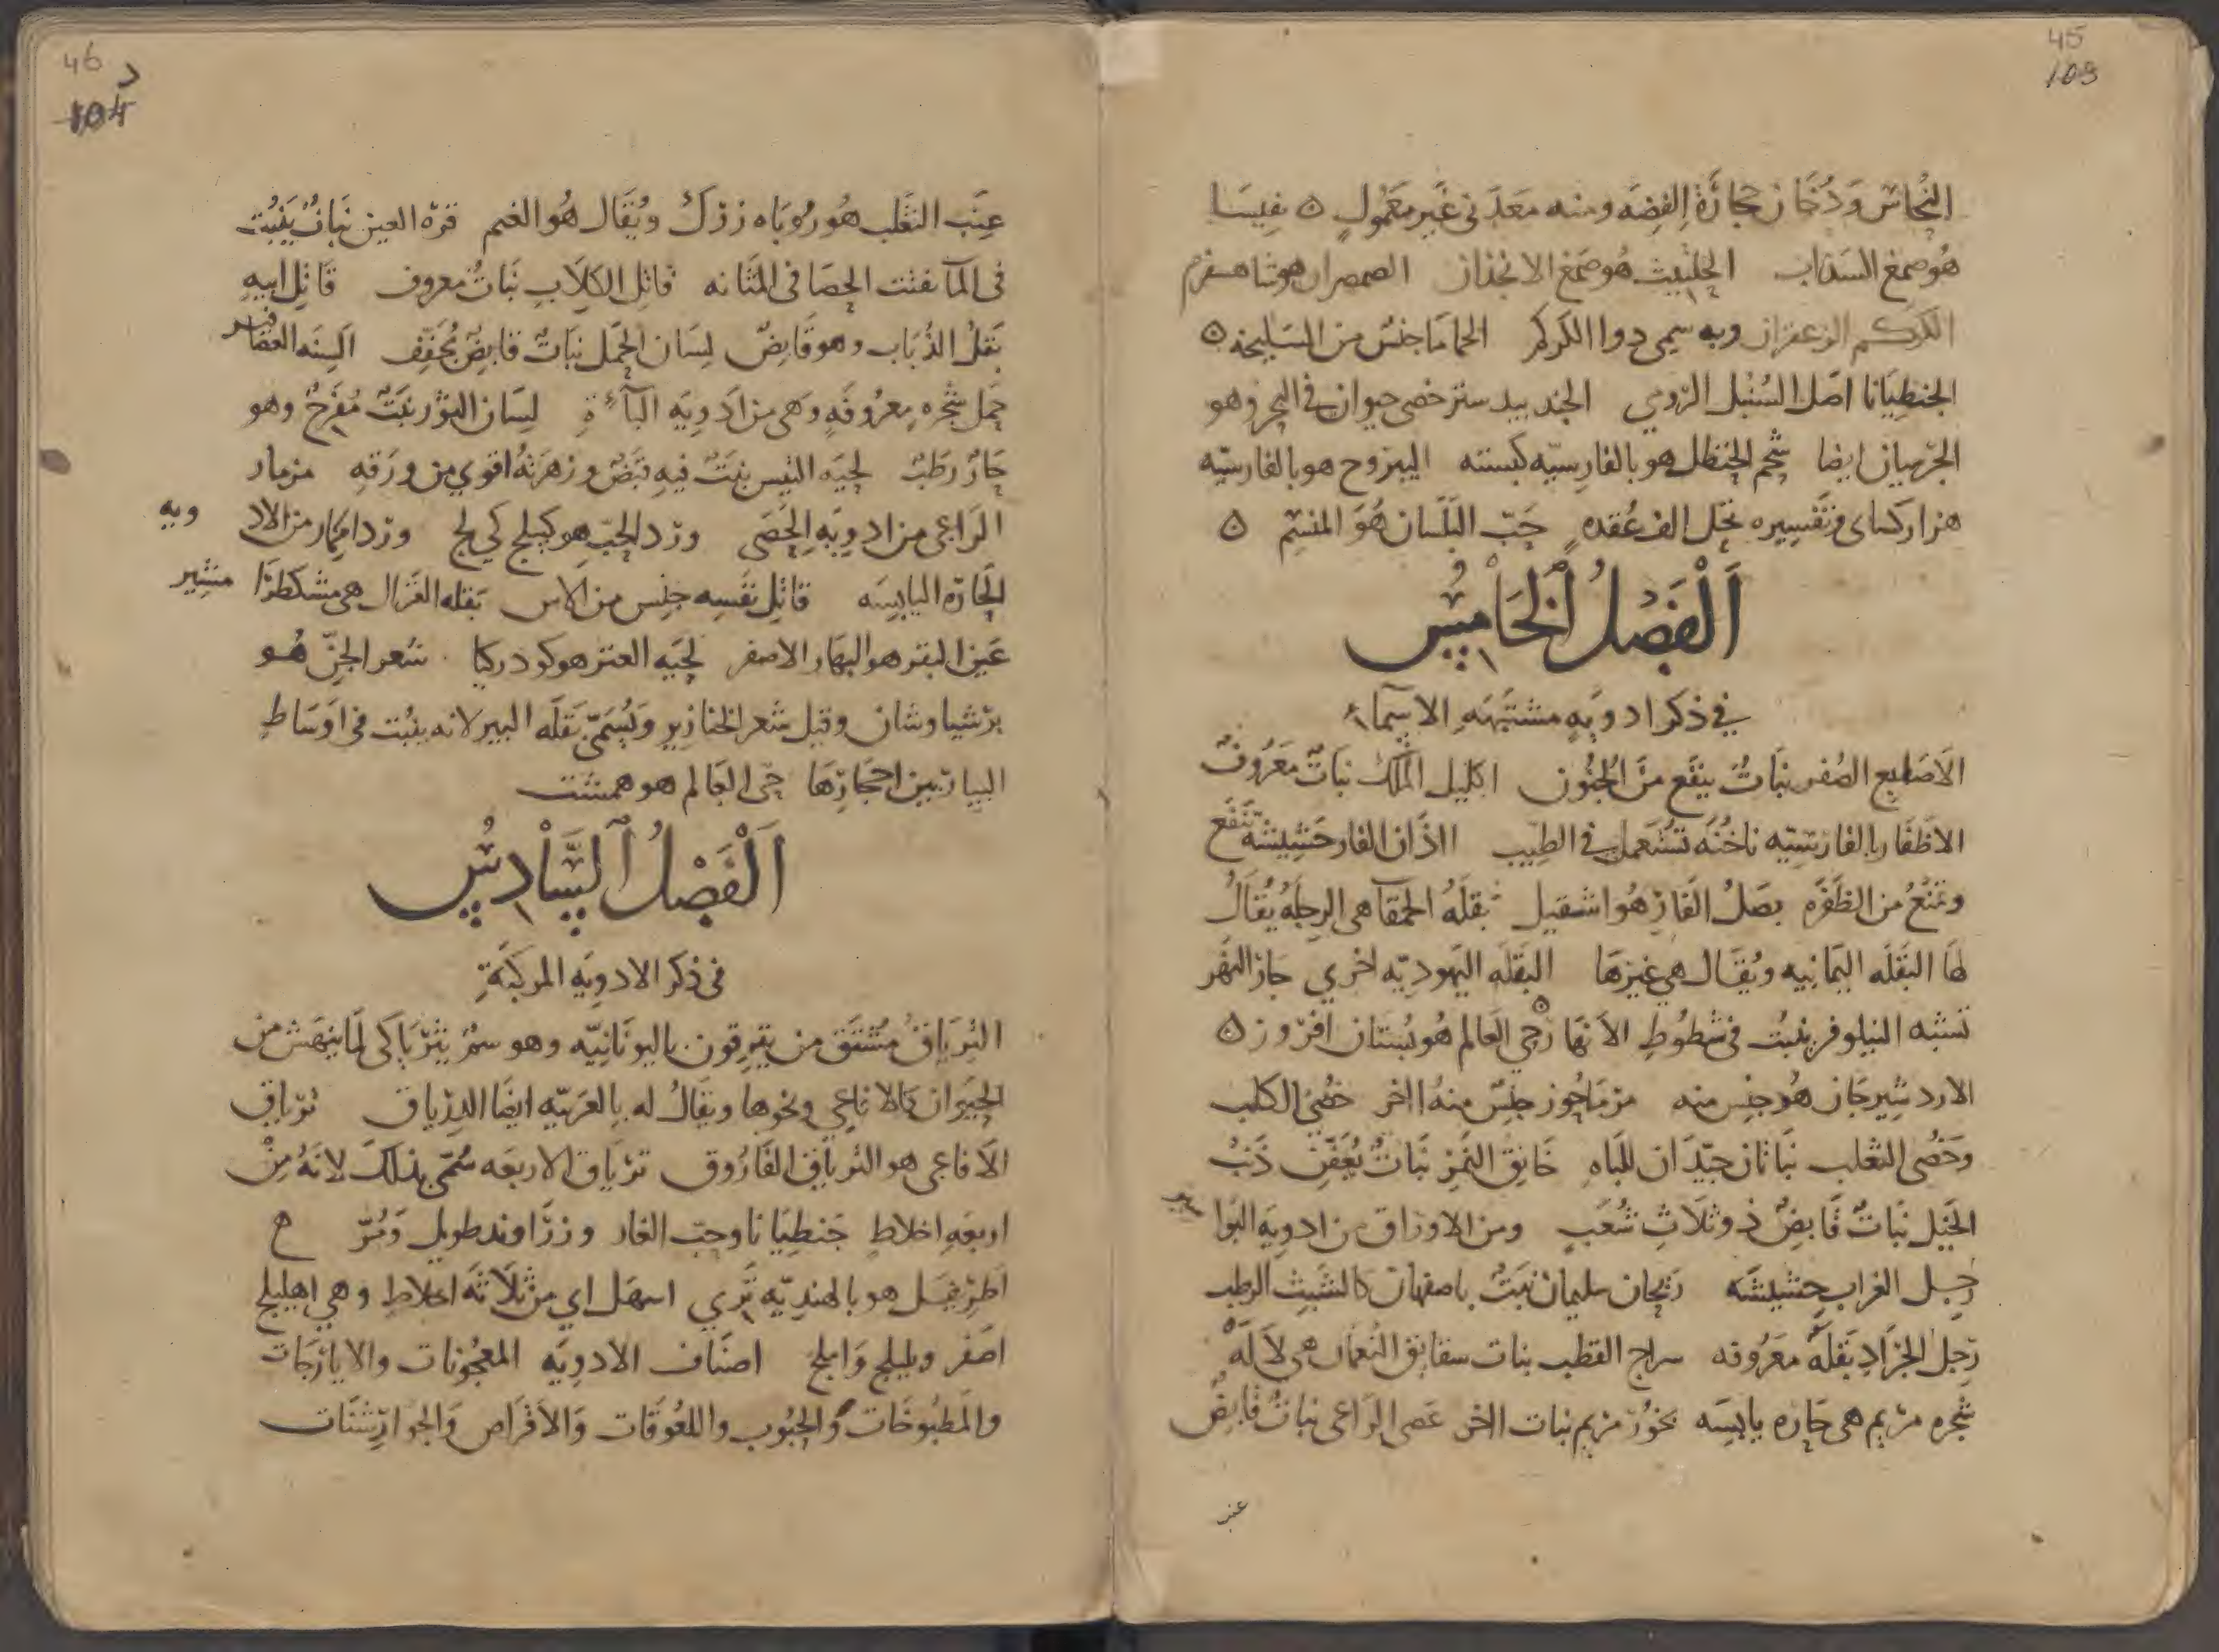 45
103
النحاس ودُخَان حجارَة الفِضَه ومنه مَعدَنى غَير مَعمُولٍ ٥ نفِيسَا
هُو صمغ السَذاب الحِلتيت هُو صَمغ الانجذان الضمصران هو شاهسفرم
الكركم الزعفران وبه سمى دوا الكركم الحماما جنسٌ من السَليخه ٥
الجنطِيَانا اصل السُنبل الرومي الجندبيدستر خصى حيوان في البحر وهو
الجزميان ايضا شحم الحنظل هو بالفارسيّه كبسته اليبروح هو بالفارسيّه
هزاركساى وتفسيره نحل الف عُقدهٍ حَبّ البَلَسان هُوَ المنسِم ٥
اَلْفَصْلُ الْخَامِسُ
في ذكر ادويَهٍ مشتبهَهِ الاسمآء
الاَصَابع الصُفر نبَاتٌ ينفَع منَ الجُنُون اكليل المَلك نبَاتٌ مَعرُوفٌ
الاَظفَار بالفَارسِيّه ناخُنَه تُستَعمل في الطِيب اذَان الفار حَشِيشَةٌ تَنفَع
وتمنَعُ من الظَفَرَه بصَلُ الفَار هُو اشقيل بقلَهُ الحمقآ هى الرِجلَهُ يُقَالُ
لهَا البَقلَه اليَمانِيه ويُقَال هي غيرَها البَقلَه اليَهوديّه اخري جَار النهر
تشبه النيلوفر ينبُت في شُطُوطِ الاَنهَار حَي العَالم هُو بُستان افرُوز ٥
الارد شِيرجَان هُو جِنس منه مرمَاحُوز جِنسٌ منهُ اخر خصى الكلب
وخصى الثعلب نبَاتان جيّدَان للبَاهِ خَانِق النَمِر نبَاتٌ يُعَفِّن ذَنبُ
الخَيل نبَاتٌ قَابِضٌ ذو ثلَاثِ شُعَبٍ ومن الاورَاق من ادوِيَه البَوا سير
رِجل الغراب حشيشَه ريحَان سليمان نبتٌ باصفهان كالشبث الرطب
رَجل الجَرَادِ بَقلَهٌ مَعرُوفه سراج القطرب نبات شقايق النُعمان هي لاَلَهْ
شجره مَريم هى حَاره يابسَه بخورُ مَريم نبات اخر عَصى الرَاعى نبَاتٌ قَابِضٌ
عنب
46
104
عِنَب الثَعلب هُو رُوبَاه زرَك ويُقَال هُو الغم قرّه العين نبَاتٌ يَنبُت
في المآ يفتت الحصَا فى المثَانه قاتل الكلَابِ نبَاتٌ معروف قَاتِل ابيهِ
بَقلُ الذُبَاب وهو قَابِضٌ لِسَان الحَمَل نبَاتٌ قابِضٌ مُجَفِّف السِنَه العصَافير
حمل شجَره معرُوفَهٍ وهى من اَدويَه البآءَةِ لِسَان الثور نَبتٌ مُفَرِحٌ وهو
حَارٌ رطَبٌ لحيَه التيس نبَتٌ فيهِ قبَضٌ وزهرَتهُ اقوي من ورَقهِ مزمار
الرَاعى من ادوِيَهِ الحَصَى ورد الحُبّ هو كبيلج كي لج من الاد ويه
الحَارّه اليابِسَه قاتل نفسِه جنِس من الاس بَقله الغَزال هى مشكطرَا مشير
عَين البقر هو البهَار الاصفر لحيَه العنز هو كوذركيا شعر الجنّ هُو
برَشياوشان وقيل شعر الخنازير ويُسَمّى بَقلَه البير لانه ينبُت فى اوسَاط
البيار بين احجَارهَا حَى العَالم هو همشت
اَلْفَصْلُ السَّادِسُ
فى ذكر الادوِيَه المركبَةِ
التِريَاق مُشتَق من تيرِقون باليونَانيّه وهو سمٌ يتريَاكى لما ينهَش من
الحيَوان كالافاعي ونحوها ويقَالُ له بالعرَبيّه ايضًا الدِرياق ترياق
الاَفاعى هو التِريَاق الفَارُوق تريَاق الاربعَه سُمّى بذلك لانَهُ مِنْ
اربعَهِ اخلاط جَنطيَانا وحبّ الغار وزرَاوند طويل ومُرّ ح
اطرِيفل هو بالهنديّه تَرِي اسهل اي من ثَلَاثَه اخلاط وهي اهليلج
اصَفر وبليلج وَاملج اصنَاف الادوِيَه المعجُونات والايارَجَات
والمَطبُوخَات والحبُوب واللعُوقَات وَالاقرَاص وَالجوارِشنَات